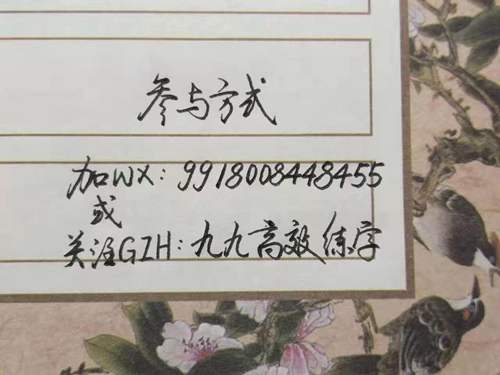 参与方式
加WX:9918008448455
或
关注GZH:九九高效练字